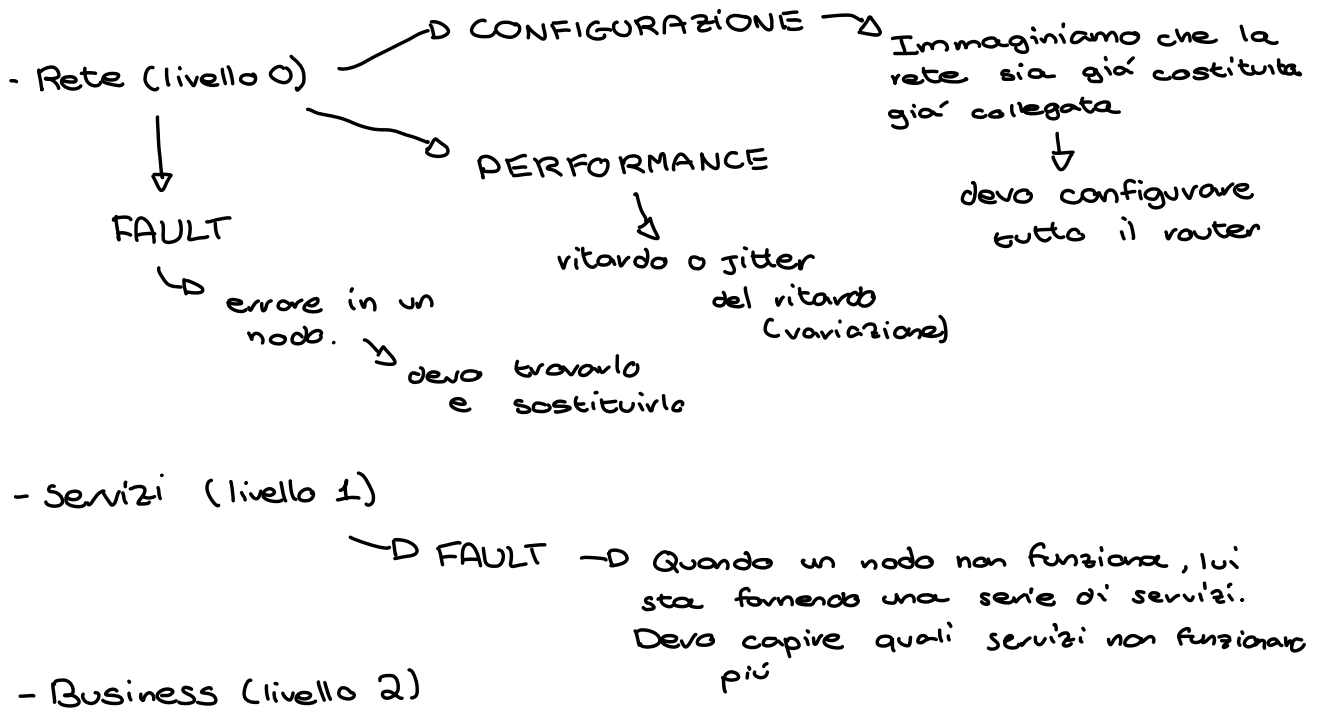 - Rete (livello 0)
CONFIGURAZIONE
Immaginiamo che la
rete sia giá costituita
giá collegata
devo configurare
tutto il router
PERFORMANCE
ritardo o jitter
del ritardo
(variazione)
FAULT
errore in un
nodo.
devo trovarlo
e sostituirlo
- Servizi (livello 1)
FAULT
Quando un nodo non funziona, lui
sta fornendo una serie di servizi.
Devo capire quali servizi non funzionano
piú
- Business (livello 2)